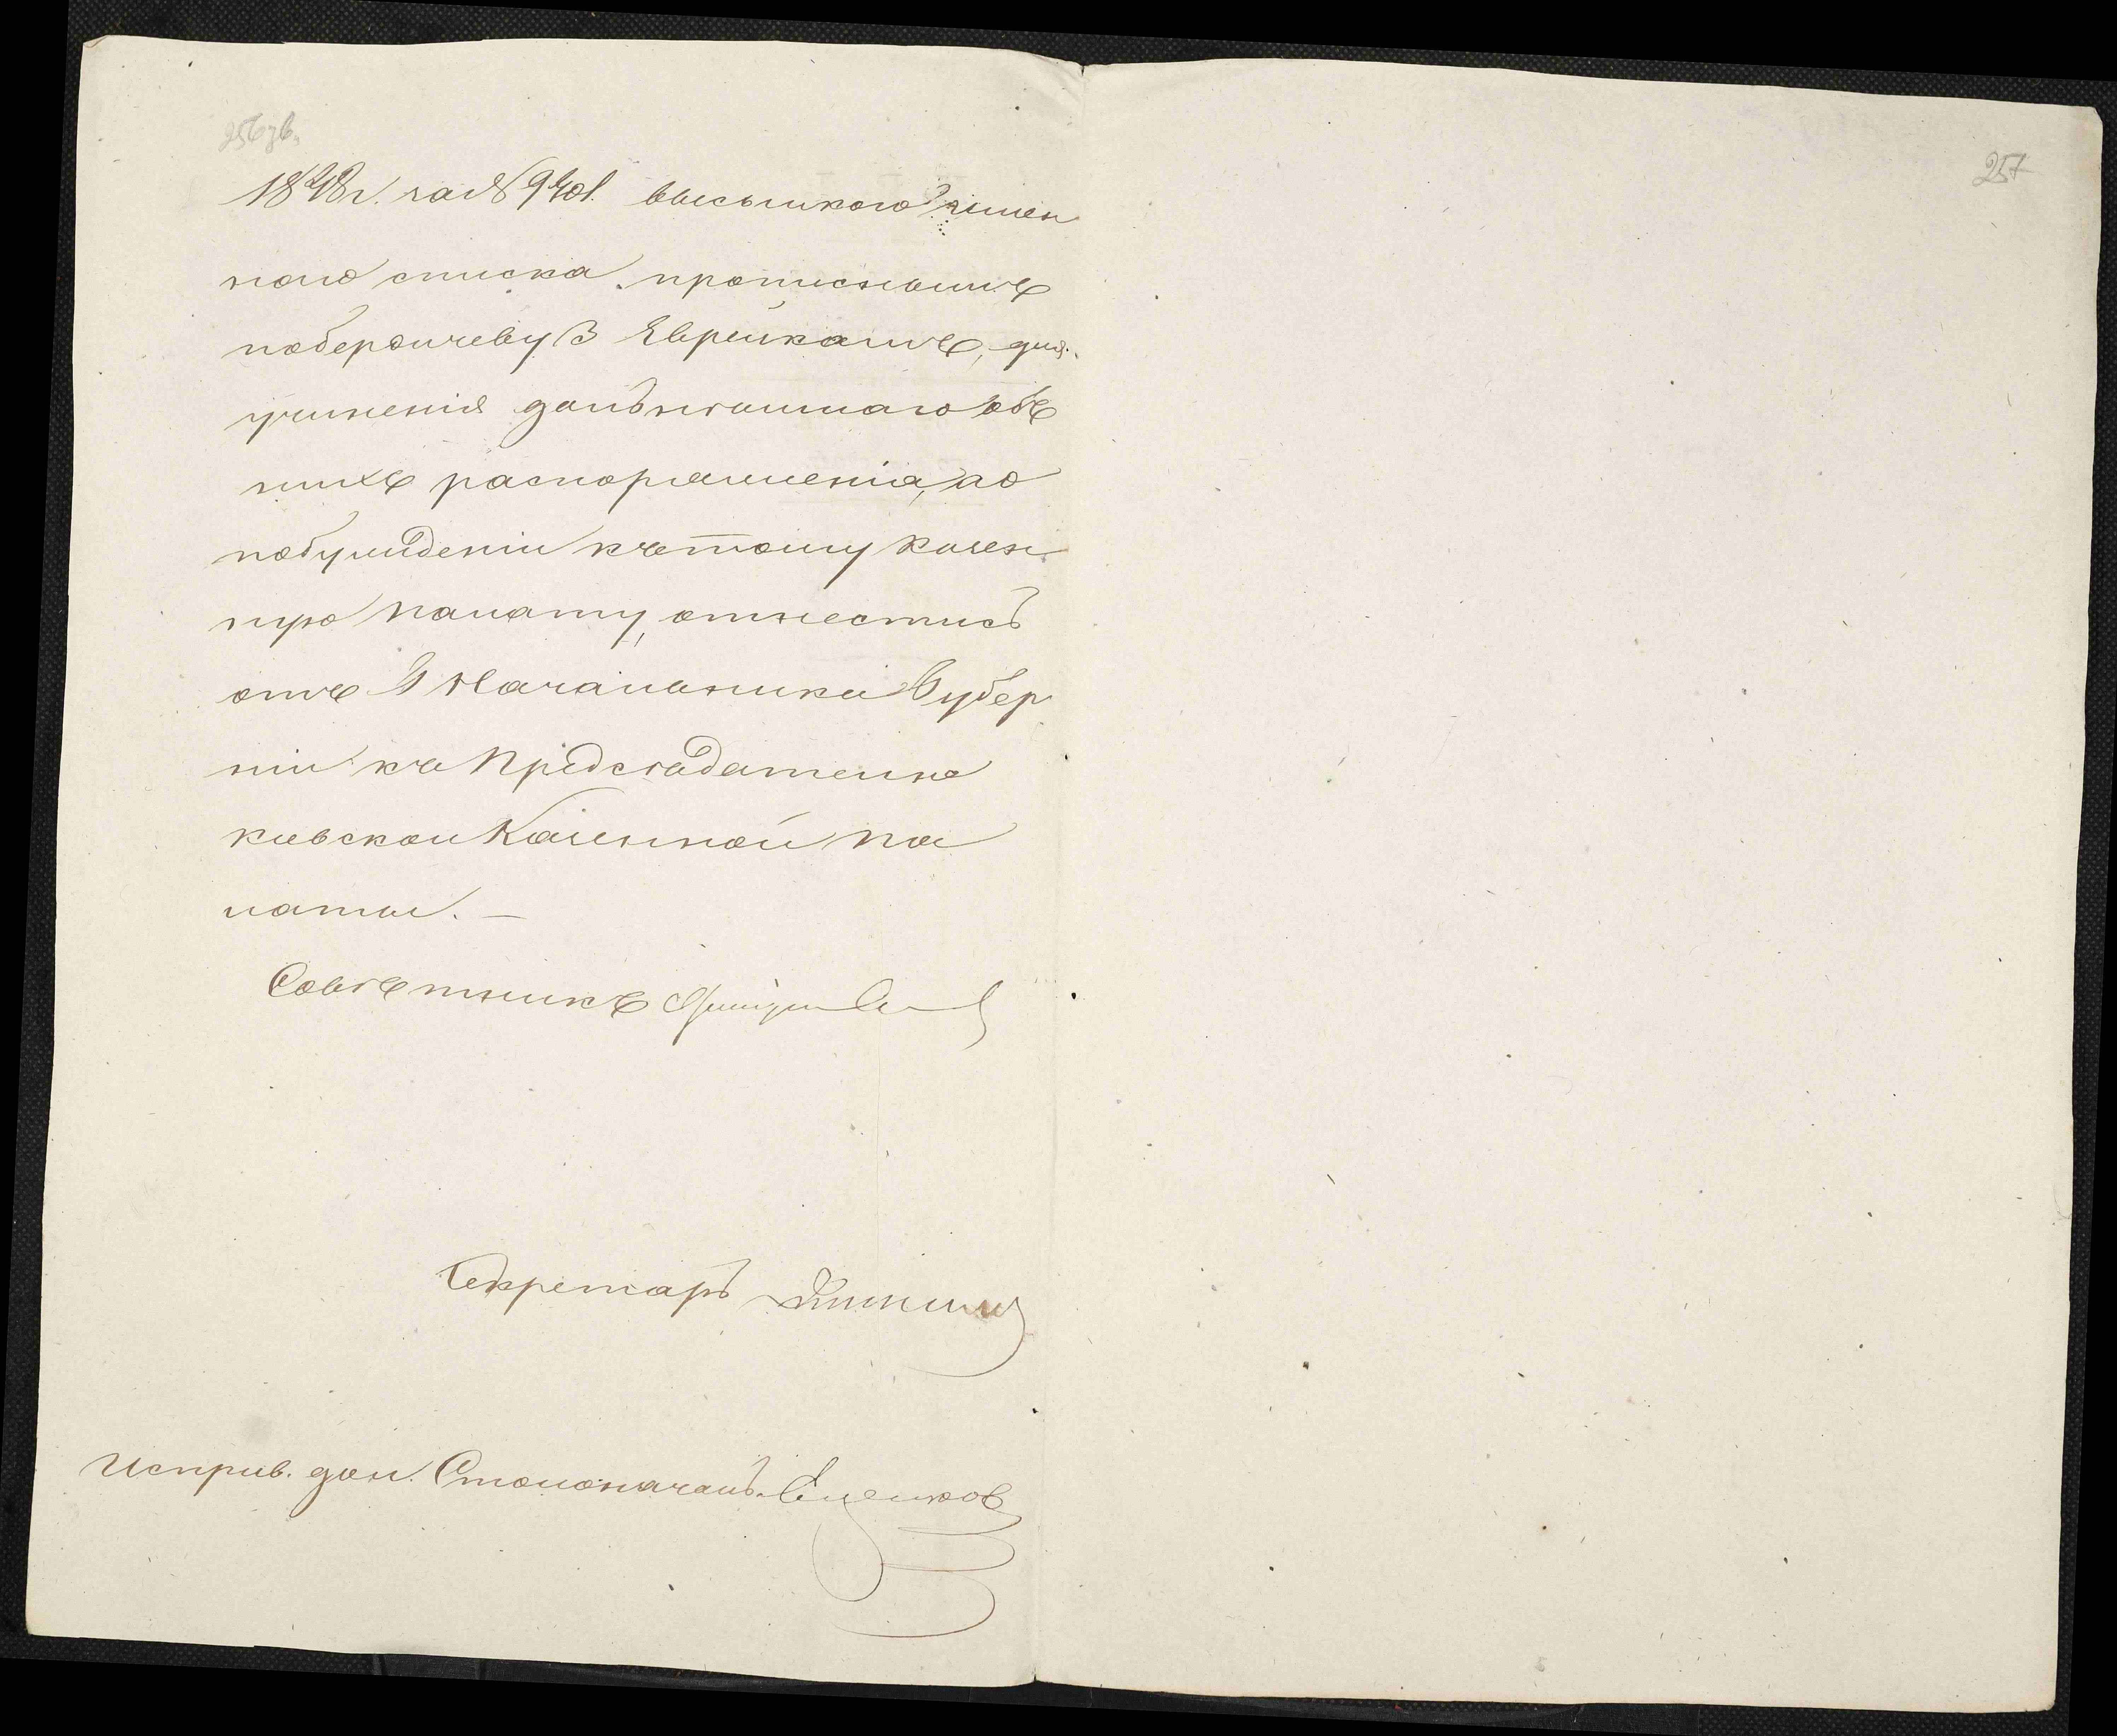 256 зв.
257
1848 г. за № 9401. высылкою имен
наго списка, прописнымъ
по бердичеву 3 Еврейкамъ, для
учиненія дальнѣйшаго объ
нихъ распоряженія, а о
побужденіи къ тому Казен
ную палату, отнестись
отъ Г Начальника Губер
ніи къ Предсѣдателю
кіевской Казенной па
латы. —
Совѣтникъ
Секретарь
Исправ. дол. Столоначаль.